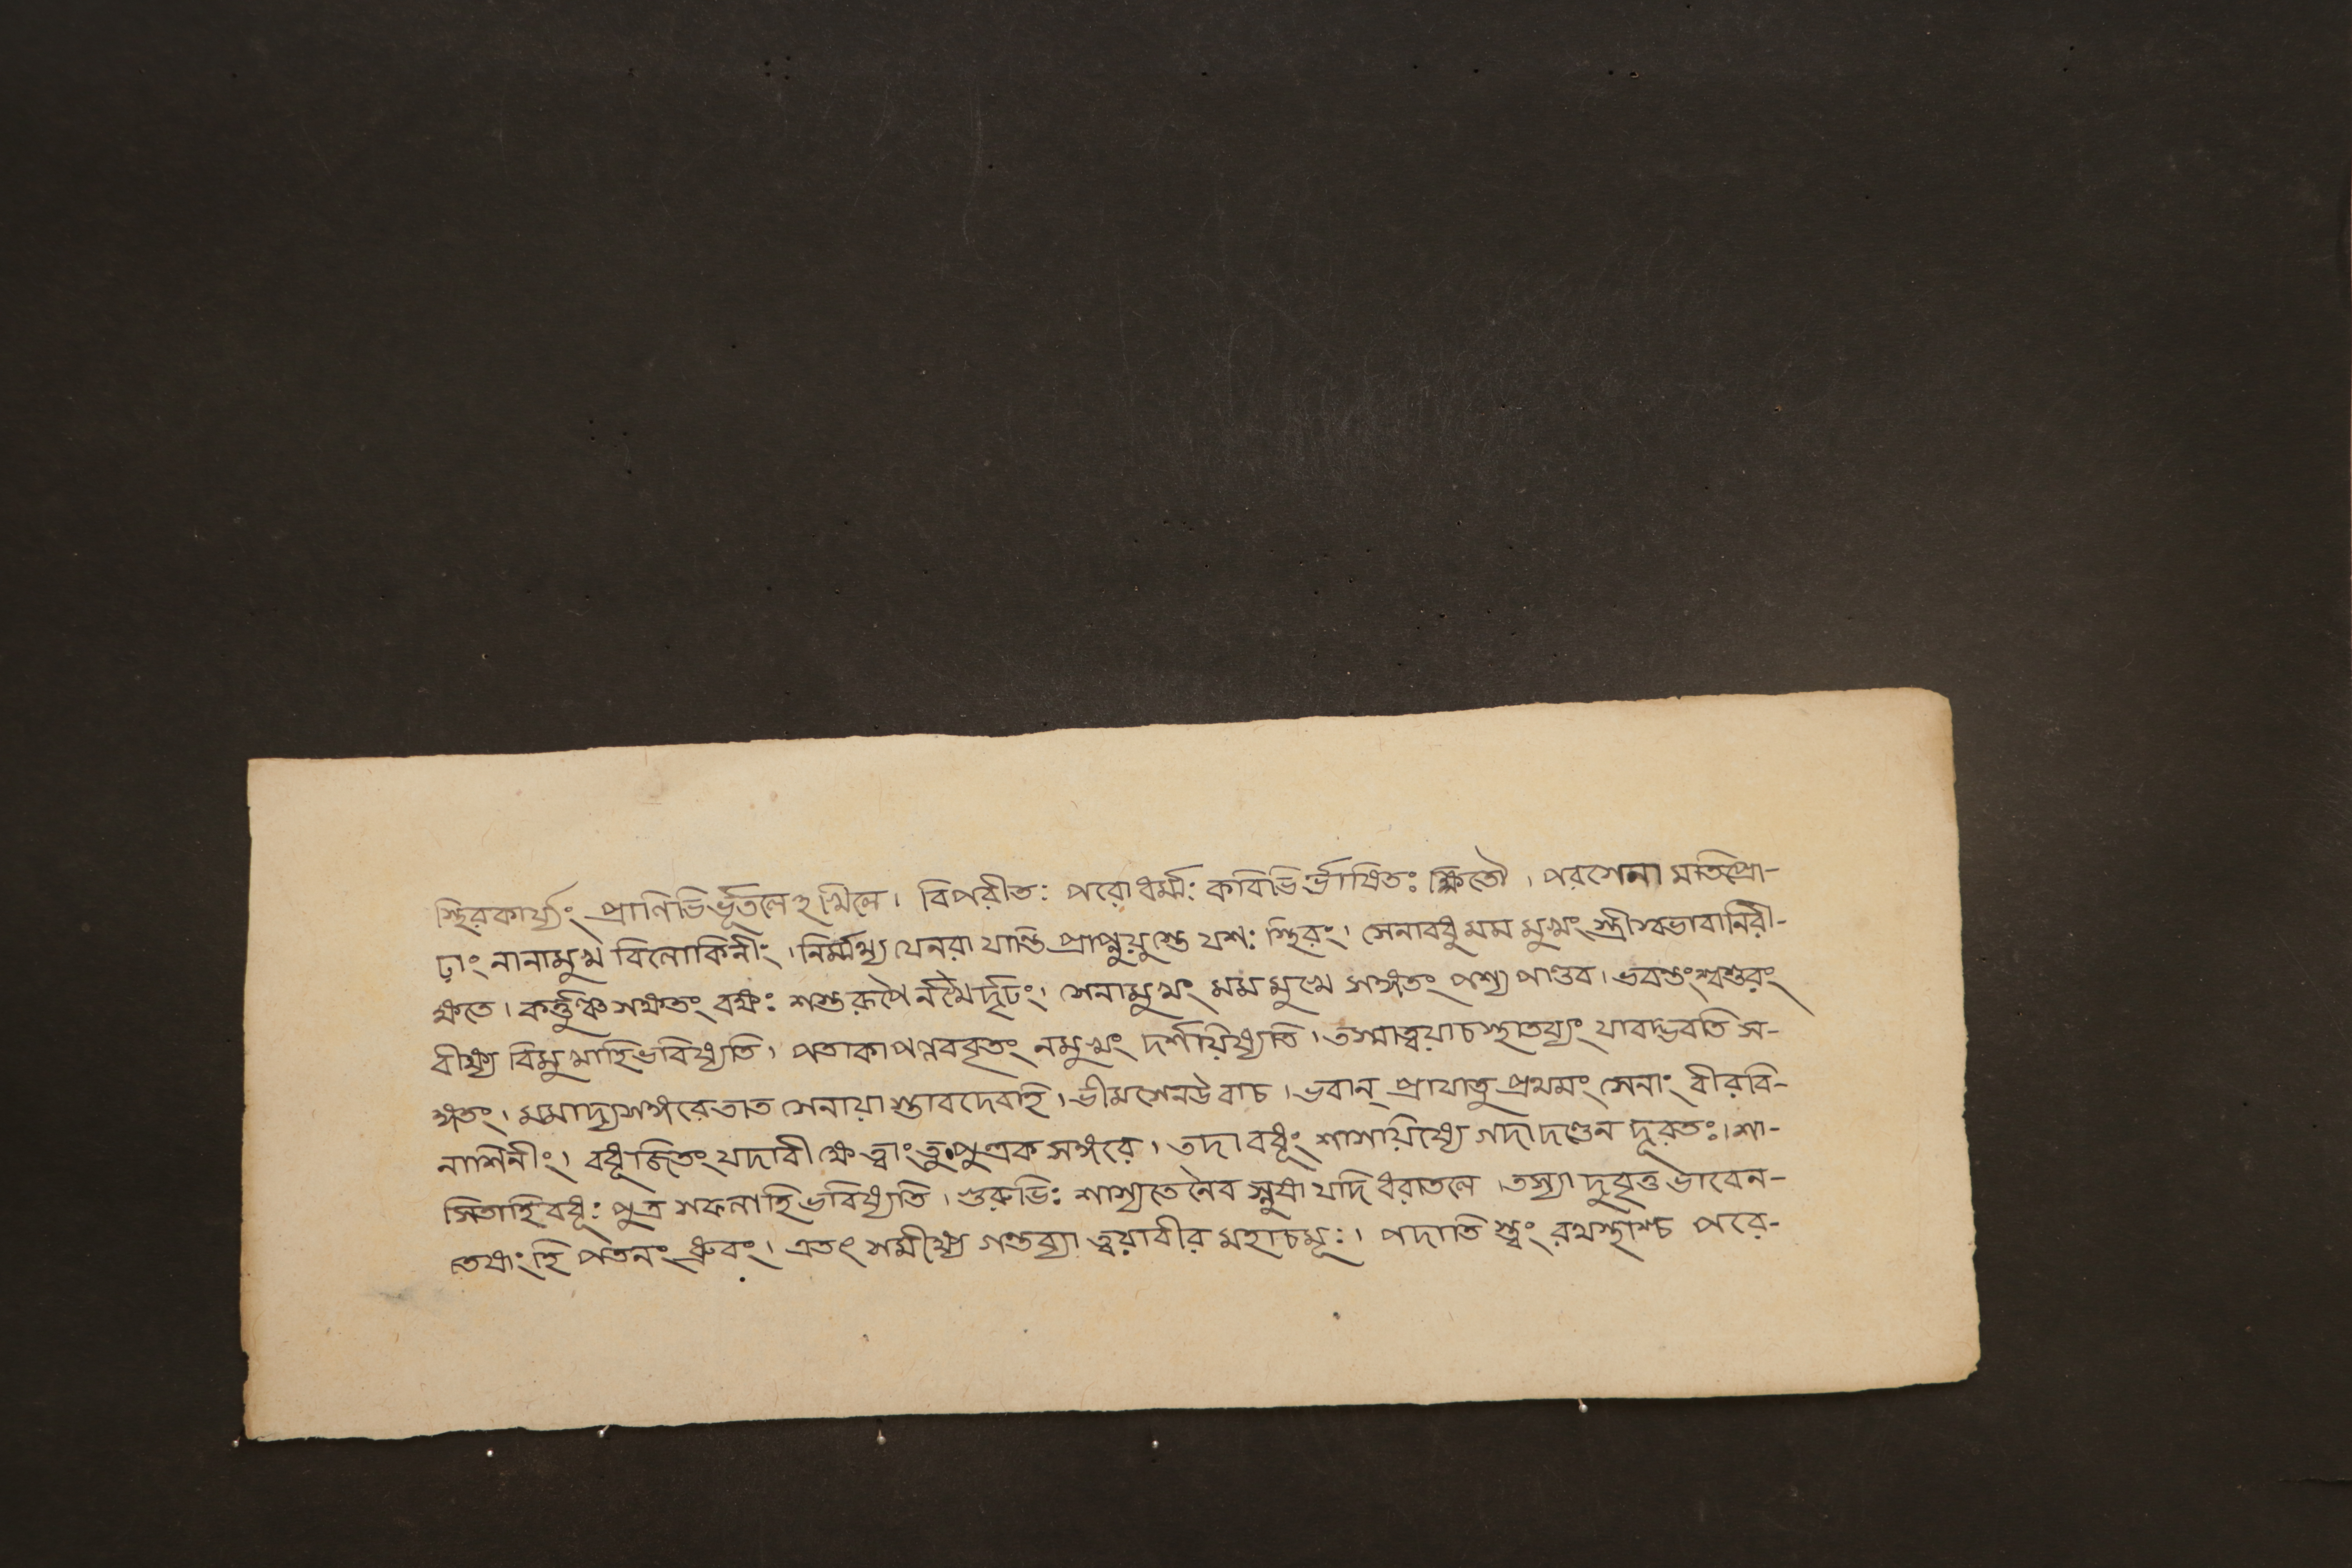 স্থিরকার্য্যং প্রাণিভির্ভূতলেঽখিলে। বিপরীতঃ পরোধর্ম্মঃ কবিভির্ভাষিতঃ ক্ষিতৌ। পরসেনা মতিপ্রৌ-
ঢ়াং নানামুখ বিলোকিনীং। নির্ম্মথ্য যেনরা যান্তি প্রাপ্নুয়ুস্তে যশঃ স্থিরং। সেনাবধূ মম মুখং স্ত্রীস্বভাবানিরী-
ক্ষতে। কর্ত্তুঞ্চ সক্ষতং বক্ষঃ শস্ত্ররূপৈ র্নখৈর্দৃঢং। সেনামুখং মম মুখে সঙ্গতং পশ্য পাণ্ডব। ভবন্তংশ্বশুরং
বীক্ষ্য বিমুখাহিভবিষ্যতি। পতাকা পল্লববৃতং নমুখং দর্শয়িষ্যতি। তস্মাত্ত্বয়াচস্থাতব্যং যাবদ্ভবতি স-
ঙ্গতং। মমাদ্যসঙ্গরেতাত সেনায়া স্তাবদেবহি। ভীমসেনউবাচ। ভবান্ প্রাযাতু প্রথমং সেনাং বীরবি-
নাশিনীং। বধূজিতং যদাবীক্ষে ত্বাং তু পুত্রক সঙ্গরে। তদা বধূং শাসয়িষ্যে গদাদণ্ডেন দূরতঃ। শা-
সিতাহিবধূঃ পুত্র সফলাহি ভবিষ্যতি। গুরুভিঃ শাস্যতে নৈব স্নুষা যদি ধরাতলে। তস্যা দুর্বৃত্ত ভাবেন-
তেষাংহি পতনং ধ্রুবং। এতৎ সমীক্ষ্যে গন্তব্যা ত্বয়াবীর মহাচমূঃ। পদাতি স্ত্বং রথস্থাশ্চ পরে-